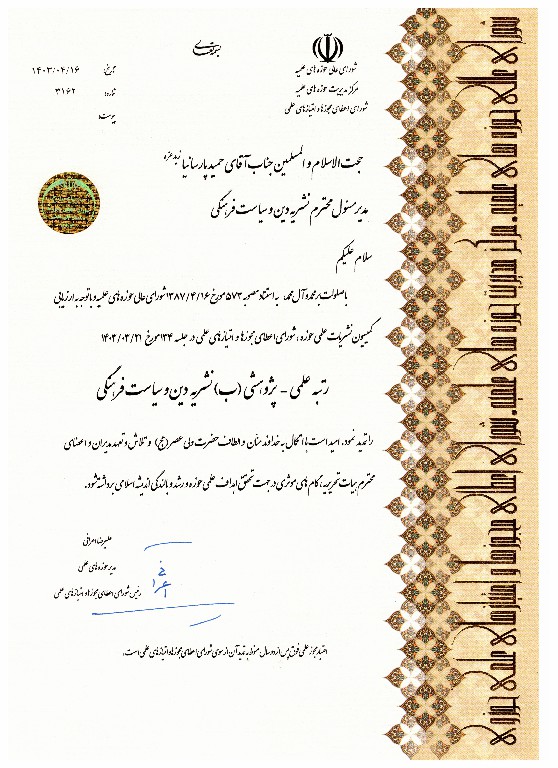 بسمه تعالی
شورای عالی حوزه های علمیه
مرکز مدیریت حوزه های علمیه
شورای اعطای مجوزها و امتیازهای علمی
تاریخ: ۱۴۰۳/۰۴/۱۶
شماره: ۳۱۶۲
پیوست:
حجت الاسلام و المسلمین جناب آقای حمید پارسانیا زید عزه
مدیر مسئول محترم نشریه دین و سیاست فرهنگی
سلام علیکم
با صلوات بر محمد و آل محمد، به استناد مصوبه ۵۷۳ مورخ ۱۳۸۷/۴/۱۶ شورای عالی حوزه های علمیه و با توجه به ارزیابی
کمیسیون نشریات علمی حوزه، شورای اعطای مجوزها و امتیازهای علمی در جلسه ۱۳۴ مورخ ۱۴۰۳/۰۳/۲۱
رتبه علمی - پژوهشی (ب) نشریه دین و سیاست فرهنگی
را تمدید نمود. امید است با اتکال به خداوند منان و الطاف حضرت ولی عصر (عج) و تلاش و تعهد مدیران و اعضای
محترم هیات تحریریه، گام های موثری در جهت تحقق اهداف علمی حوزه و رشد و بالندگی اندیشه اسلامی برداشته شود.
علیرضا اعرافی
مدیر حوزه های علمی
رئیس شورای اعطای مجوزها و امتیازهای علمی
اعتبار مجوز علمی فوق پس از دو سال منوط به تمدید آن از سوی شورای اعطای مجوزها و امتیازهای علمی است.
شورای عالی حوزه های علمیه. مرکز مدیریت حوزه های علمیه. شورای اعطای مجوزها و امتیازهای علمی حوزه